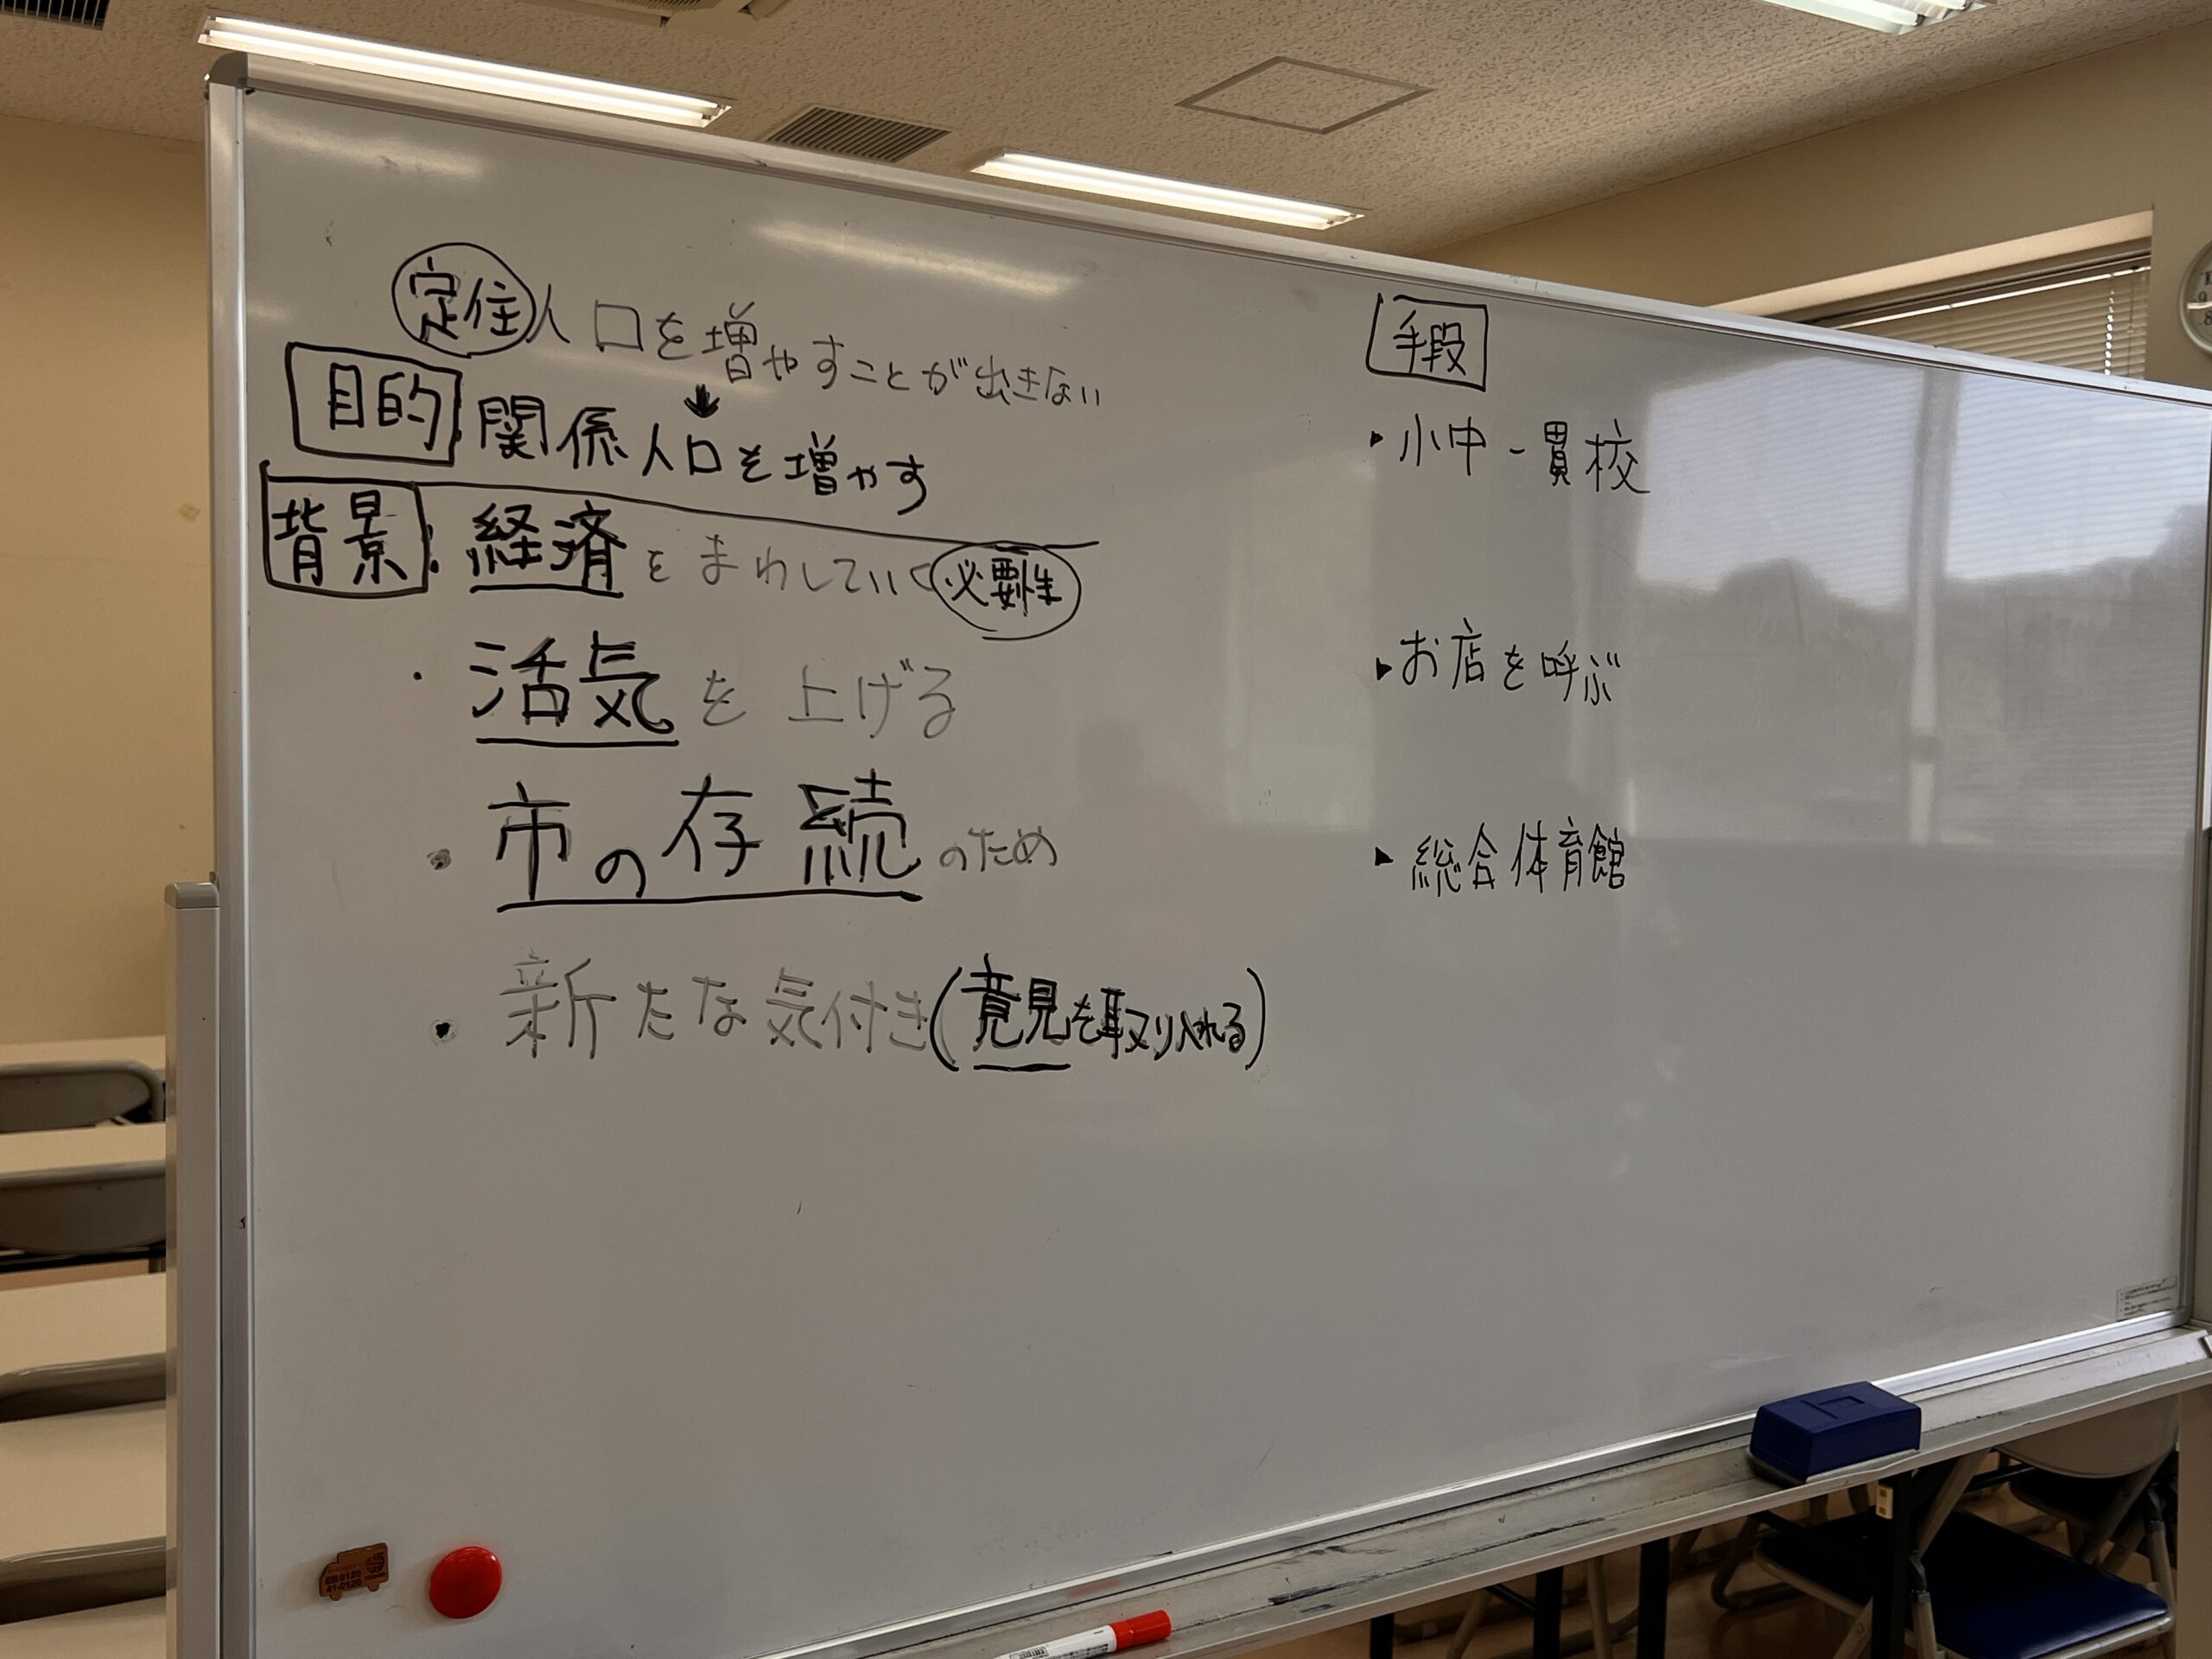 定住人口を増やすことが出きない
目的:関係人口を増やす
背景:経済をまわしていく必要性
・活気を上げる
・市の存続のため
・新たな気付き(意見を取り入れる)
手段
▸小中一貫校
▸お店を呼ぶ
▸総合体育館